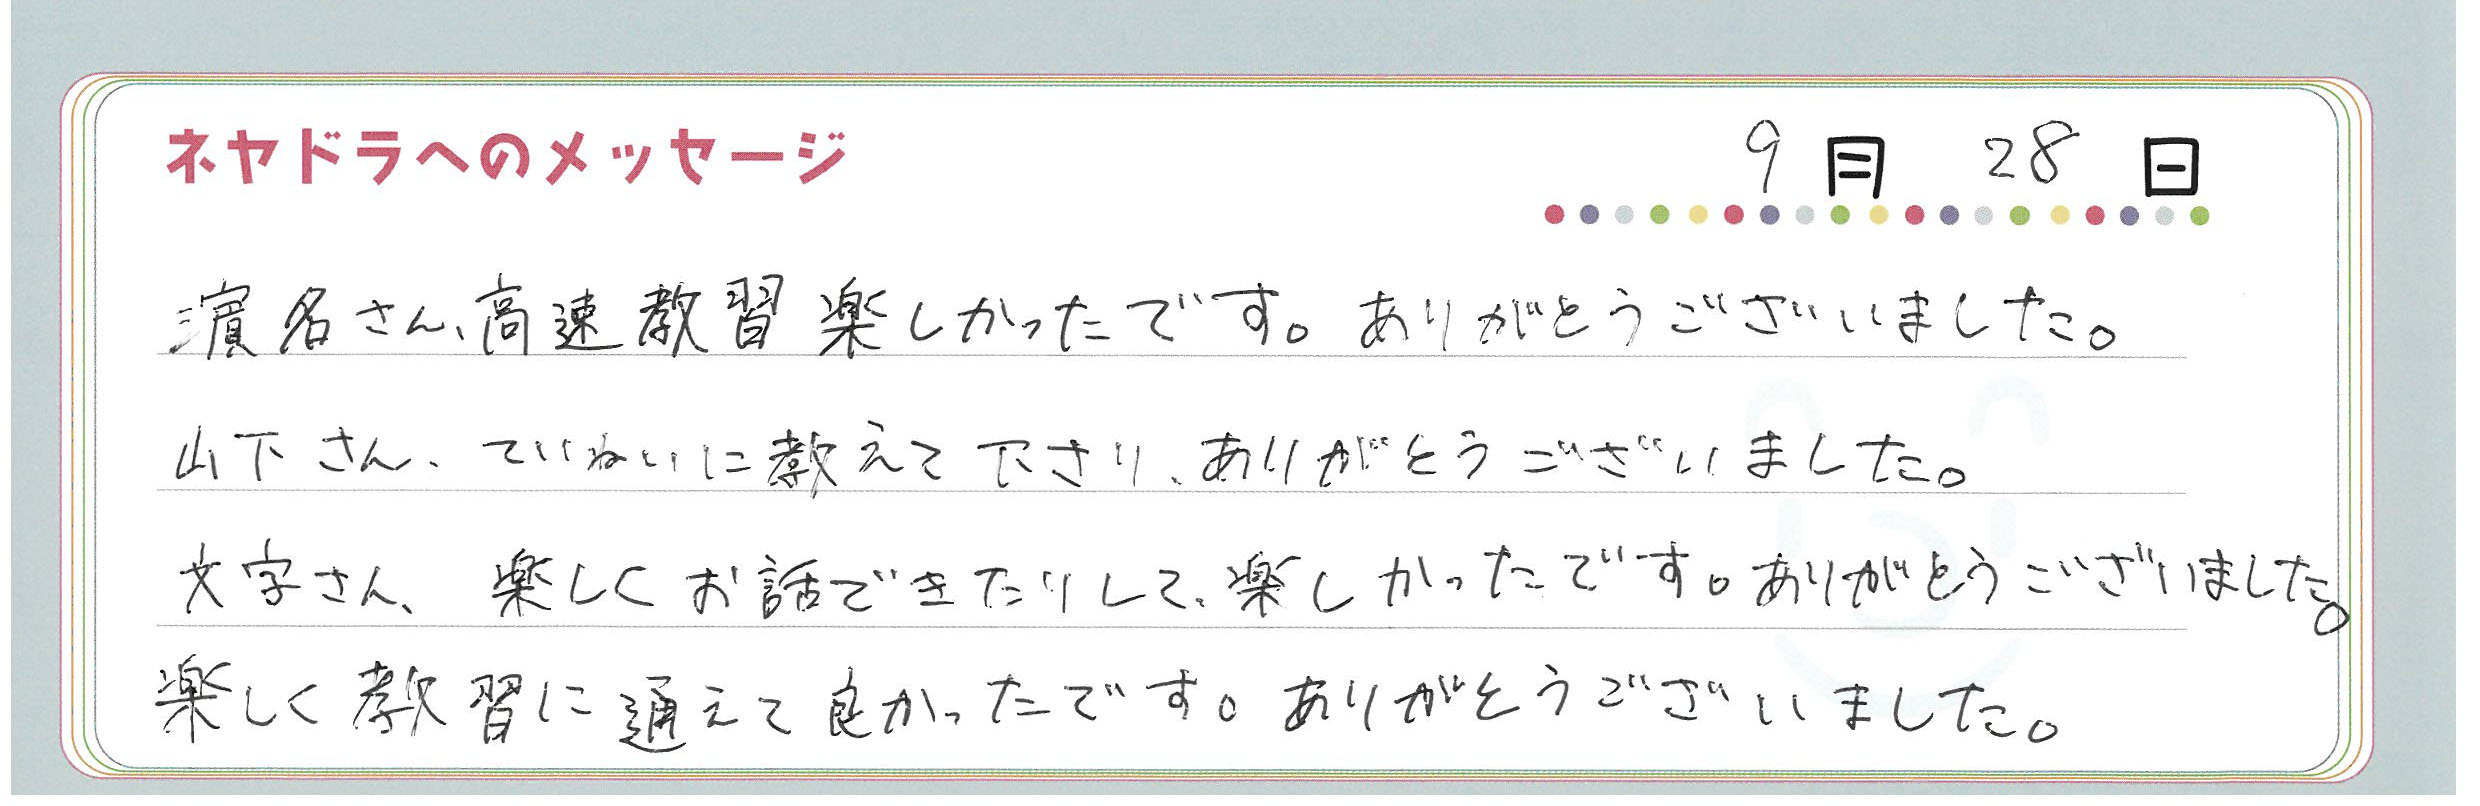 ネヤドラへのメッセージ
9月 28日
濱名さん、高速教習楽しかったです。ありがとうございました。
山下さん、ていねいに教えて下さり、ありがとうございました。
文字さん、楽しくお話できたりして、楽しかったです。ありがとうございました。
楽しく教習に通えて良かったです。ありがとうございました。